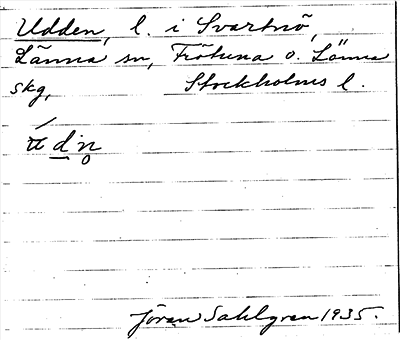 Udden, l. i Svartnö,
Länna sn, Frötuna o. Länna
skg, Stockholms l.
Jöran Sahlgren 1935.